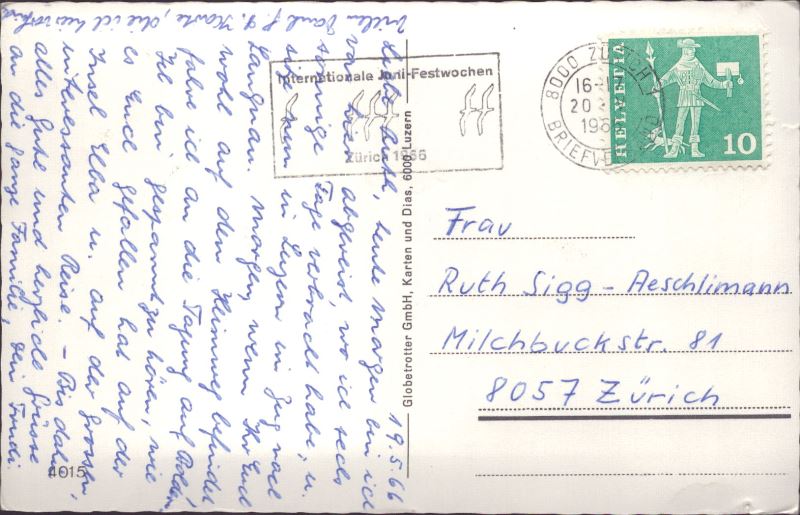 19.5.66
Liebe Ruth, heute Morgen bin ich
von abgereist, wo ich sechs
sonnige Tage verbracht habe, u.
sitze nun in Luzern im Zug nach
Langnau. Morgen, wenn Ihr Euch
wohl auf dem Heimweg befindet
fahre ich an die Tagung auf
Ich bin gespannt zu hören, wie
es Euch gefallen hat auf der
Insel Elba u. auf der grossen,
interessanten Reise. - Bis dahin
alles Gute und herzliche Grüsse
an die ganze Familie, Dein Trudi.
Vielen Dank f. d. Karte, die ich
Internationale Juni-Festwochen
Zürich 1966
8000 ZÜRICH
20.
196
BRIEFVERSAND
HELVETIA
10
Globetrotter GmbH, Karten und Dias, 6000 Luzern
Frau
Ruth Sigg-Aeschlimann
Milchbuckstr. 81
8057 Zürich
4015